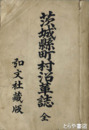 茨城縣町村沿革誌 全
弘文社藏版